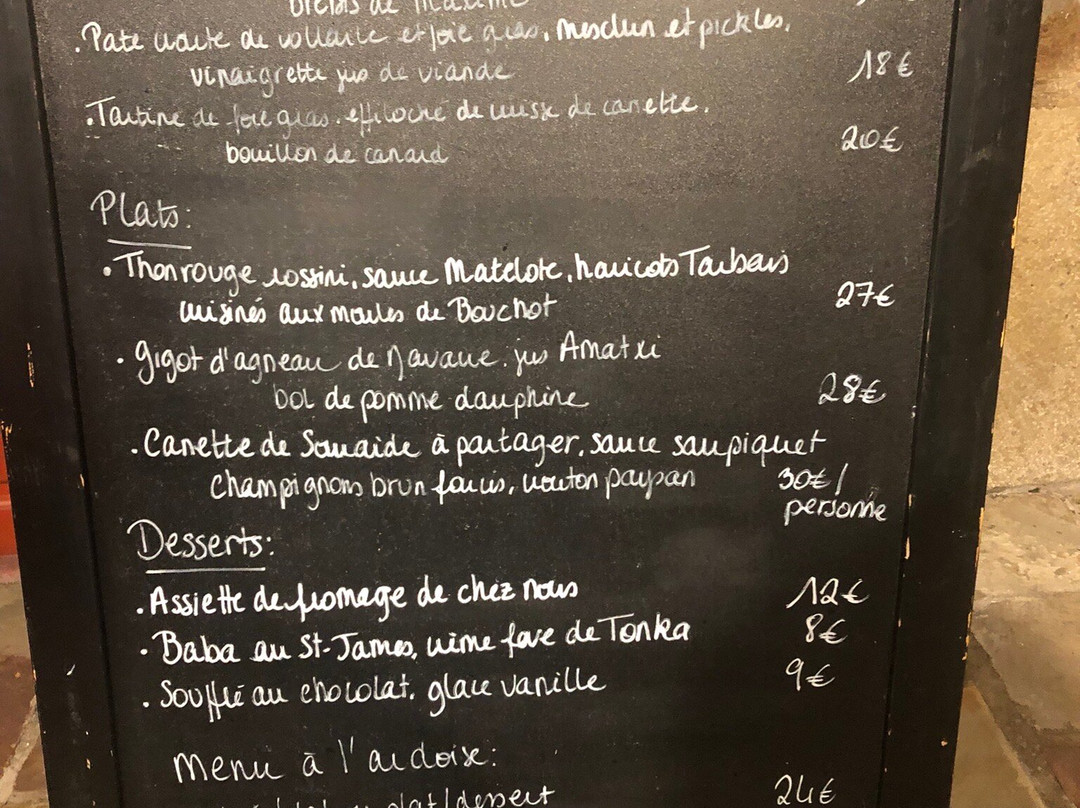 . Pate croute de volaille et foie gras, mesclun et pickles,
vinaigrette jus de viande 18€
. Tartine de foie gras, effiloché de cuisse de canette,
bouillon de canard 20€
Plats:
. Thon rouge rossini, sauce Matelote, haricots Tarbais
cuisinés aux moules de Bouchot 27€
. Gigot d'agneau de Navarre, jus Amatxi
bol de pomme dauphine 28€
. Canette de Somaide à partager, sauce saupiquet
champignons brun farcis, crouton paysan 30€/
personne
Desserts:
. Assiette de fromage de chez nous 12€
. Baba au St-James, crème fève de Tonka 8€
. Soufflé au chocolat, glace vanille 9€
Menu à l'ardoise:
plat/dessert 24€